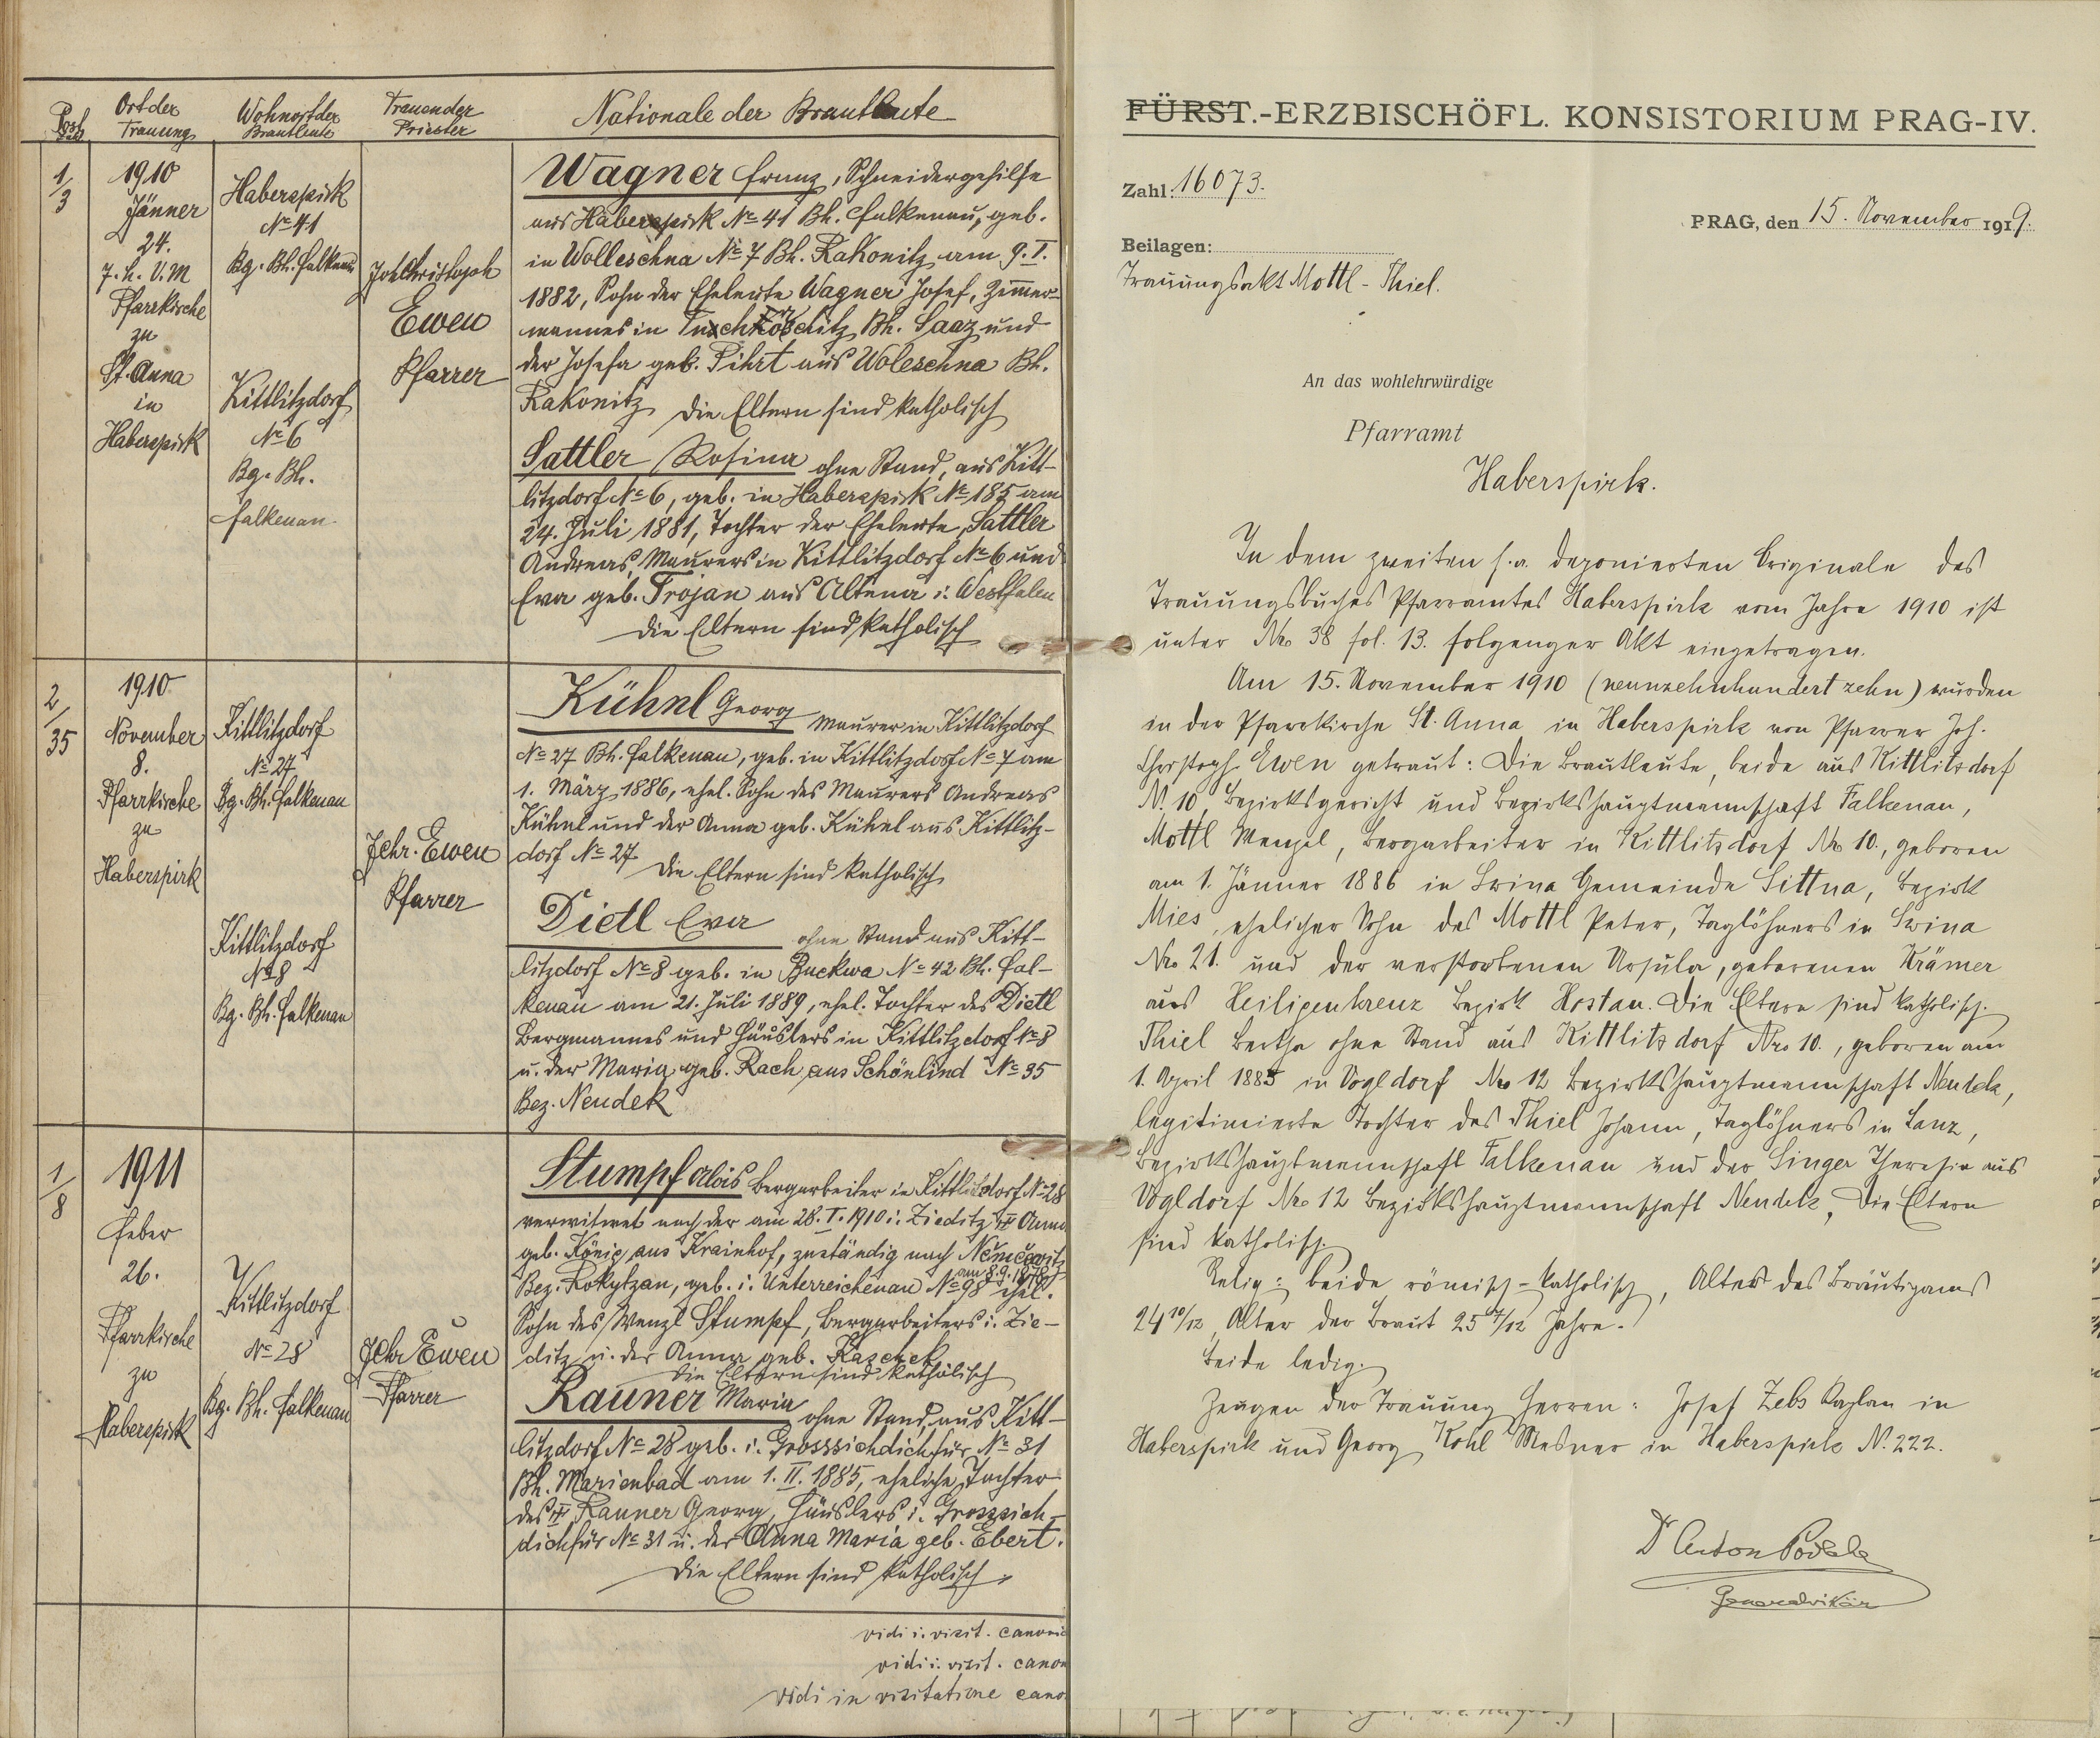 Post Zahl
Ort der Trauung
Wohnort der Brautleute
Trauender Priester
Nationale der Brautleute
1/3
1910
Jänner
24.
7. h. V. M
Pfarrkirche
zu
St. Anna
in
Haberspirk
Haberspirk
No 41
Bg. Bh. Falkenau
Kittlitzdorf
No 6
Bg. Bh.
Falkenau
Joh Christoph
Ewen
Pfarrer
Wagner Franz, Schneidergehilfe
aus Haberspirk No 41 Bh. Falkenau, geb.
in Wolleschna No 7 Bh. Rakonitz am 9. I.
1882, Sohn der Eheleute Wagner Josef, Zimmer-
mannes in Bh. Saaz und
der Josefa geb. Pihrt aus Woleschna Bh.
Rakonitz die Eltern sind katholisch
Sattler Rosina ohne Stand, aus Kitt-
litzdorf No 6, geb. in Haberspirk No 185 am
24. Juli 1881, Tochter der Eheleute Sattler
Andreas, Maurers in Kittlitzdorf No 6 und
Eva geb. Trojan aus Altena i. Westfalen
die Eltern sind katholisch
2/35
1910
November
8.
Pfarrkirche
zu
Haberspirk
Kittlitzdorf
No 27
Bg. Bh. Falkenau
Kittlitzdorf
No 8
Bg. Bh. Falkenau
JChr. Ewen
Pfarrer
Kühnl Georg Maurer in Kittlitzdorf
No 27 Bh. Falkenau, geb. in Kittlitzdorf No 7 am
1. März 1886, ehel. Sohn des Maurers Andreas
Kühnl und der Anna geb. Kühnl aus Kittlitz-
dorf No 27 die Eltern sind katholisch
Dietl Eva ohne Stand aus Kitt-
litzdorf No 8 geb. in Buckwa No 42 Bh. Fal-
kenau am 21. Juli 1889, ehel. Tochter des Dietl
Bergmannes und Häuslers in Kittlitzdorf No 8
u. der Maria geb. Rach aus Schönlind No 35
Bez. Neudek
1/8
1911
Feber
26.
Pfarrkirche
zu
Haberspirk
Kittlitzdorf
No 28
Bg. Bh. Falkenau
JChr Ewen
Pfarrer
Stumpf Alois Bergarbeiter in Kittlitzdorf No 28
verwitwet nach der am 28. I. 1910 i. Zieditz Anna
geb. König aus Krainhof, zuständig nach
Bez. Rokytzan, geb. i. Unterreichenau No 98 ehel.
Sohn des Wenzl Stumpf, Bergarbeiters i. Zie-
ditz u. der Anna geb. Kaschek
die Eltern sind katholisch
Rauner Maria ohne Stand, aus Kitt-
litzdorf No 28 geb. i. Grosssichdichfür No 31
Bh. Marienbad am 1. II. 1885, eheliche Tochter
des Rauner Georg, Häuslers i. Grosssich-
dichfür No 31 u. der Anna Maria geb. Ebert.
die Eltern sind katholisch.
vidi i. visit. canonic
vidi i. visit. canon
vidi in visitatione cano
FÜRST.-ERZBISCHÖFL. KONSISTORIUM PRAG-IV.
Zahl: 16073.
PRAG, den 15. November 1919.
Beilagen:
Trauungsakt Mottl - Thiel.
An das wohlehrwürdige
Pfarramt
Haberspirk.
In dem zweiten h. a. deponierten Originale des
Trauungsbuches Pfarramtes Haberspirk vom Jahre 1910 ist
unter Nro 38 fol. 13. folgenger Akt eingetragen.
Am 15. November 1910 (neunzehnhundert zehn) wurden
in der Pfarrkirche St. Anna in Haberspirk von Pfarrer Joh.
Christoph Ewen getraut: Die Brautleute, beide aus Kittlitzdorf
N. 10, Bezirksgericht und Bezirkshauptmannschaft Falkenau,
Mottl Wenzel, Bergarbeiter in Kittlitzdorf Nro 10., geboren
am 1. Jänner 1886 in Swina Gemeinde Sittna, Bezirk
Mies, ehelicher Sohn des Mottl Peter, Taglöhners in Swina
Nro 21. und der verstorbenen Ursula, geborenen Krämer
aus Heiligenkreuz Bezirk Hostau. Die Eltern sind katholisch.
Thiel Bertha ohne Stand aus Kittlitzdorf Nro 10., geboren am
1. April 1885 in Vogldorf Nro 12 Bezirkshauptmannschaft Neudek,
legitimierte Tochter des Thiel Johann, Taglöhners in Lanz,
Bezirkshauptmannschaft Falkenau und der Singer Theresia aus
Vogldorf Nro 12 Bezirkshauptmannschaft Neudek, Die Eltern
sind katholisch.
Relig: beide römisch-katholisch, Alter des Bräutigams
24 10/12, Alter der Braut 25 7/12 Jahre.
Beide ledig.
Zeugen der Trauung Herren: Josef Zebs Kaplan in
Haberspirk und Georg Kohl Mesner in Haberspirk N. 222.
Dr Anton Podlaha
Generalvikär